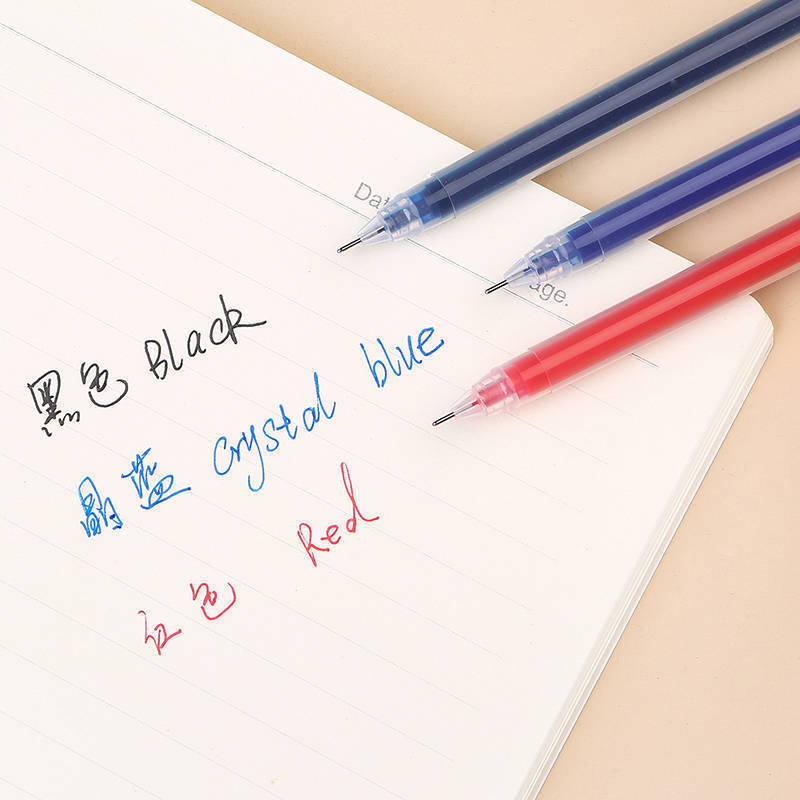 Dat
age.
黑色 Black
晶蓝 Crystal blue
红色 Red